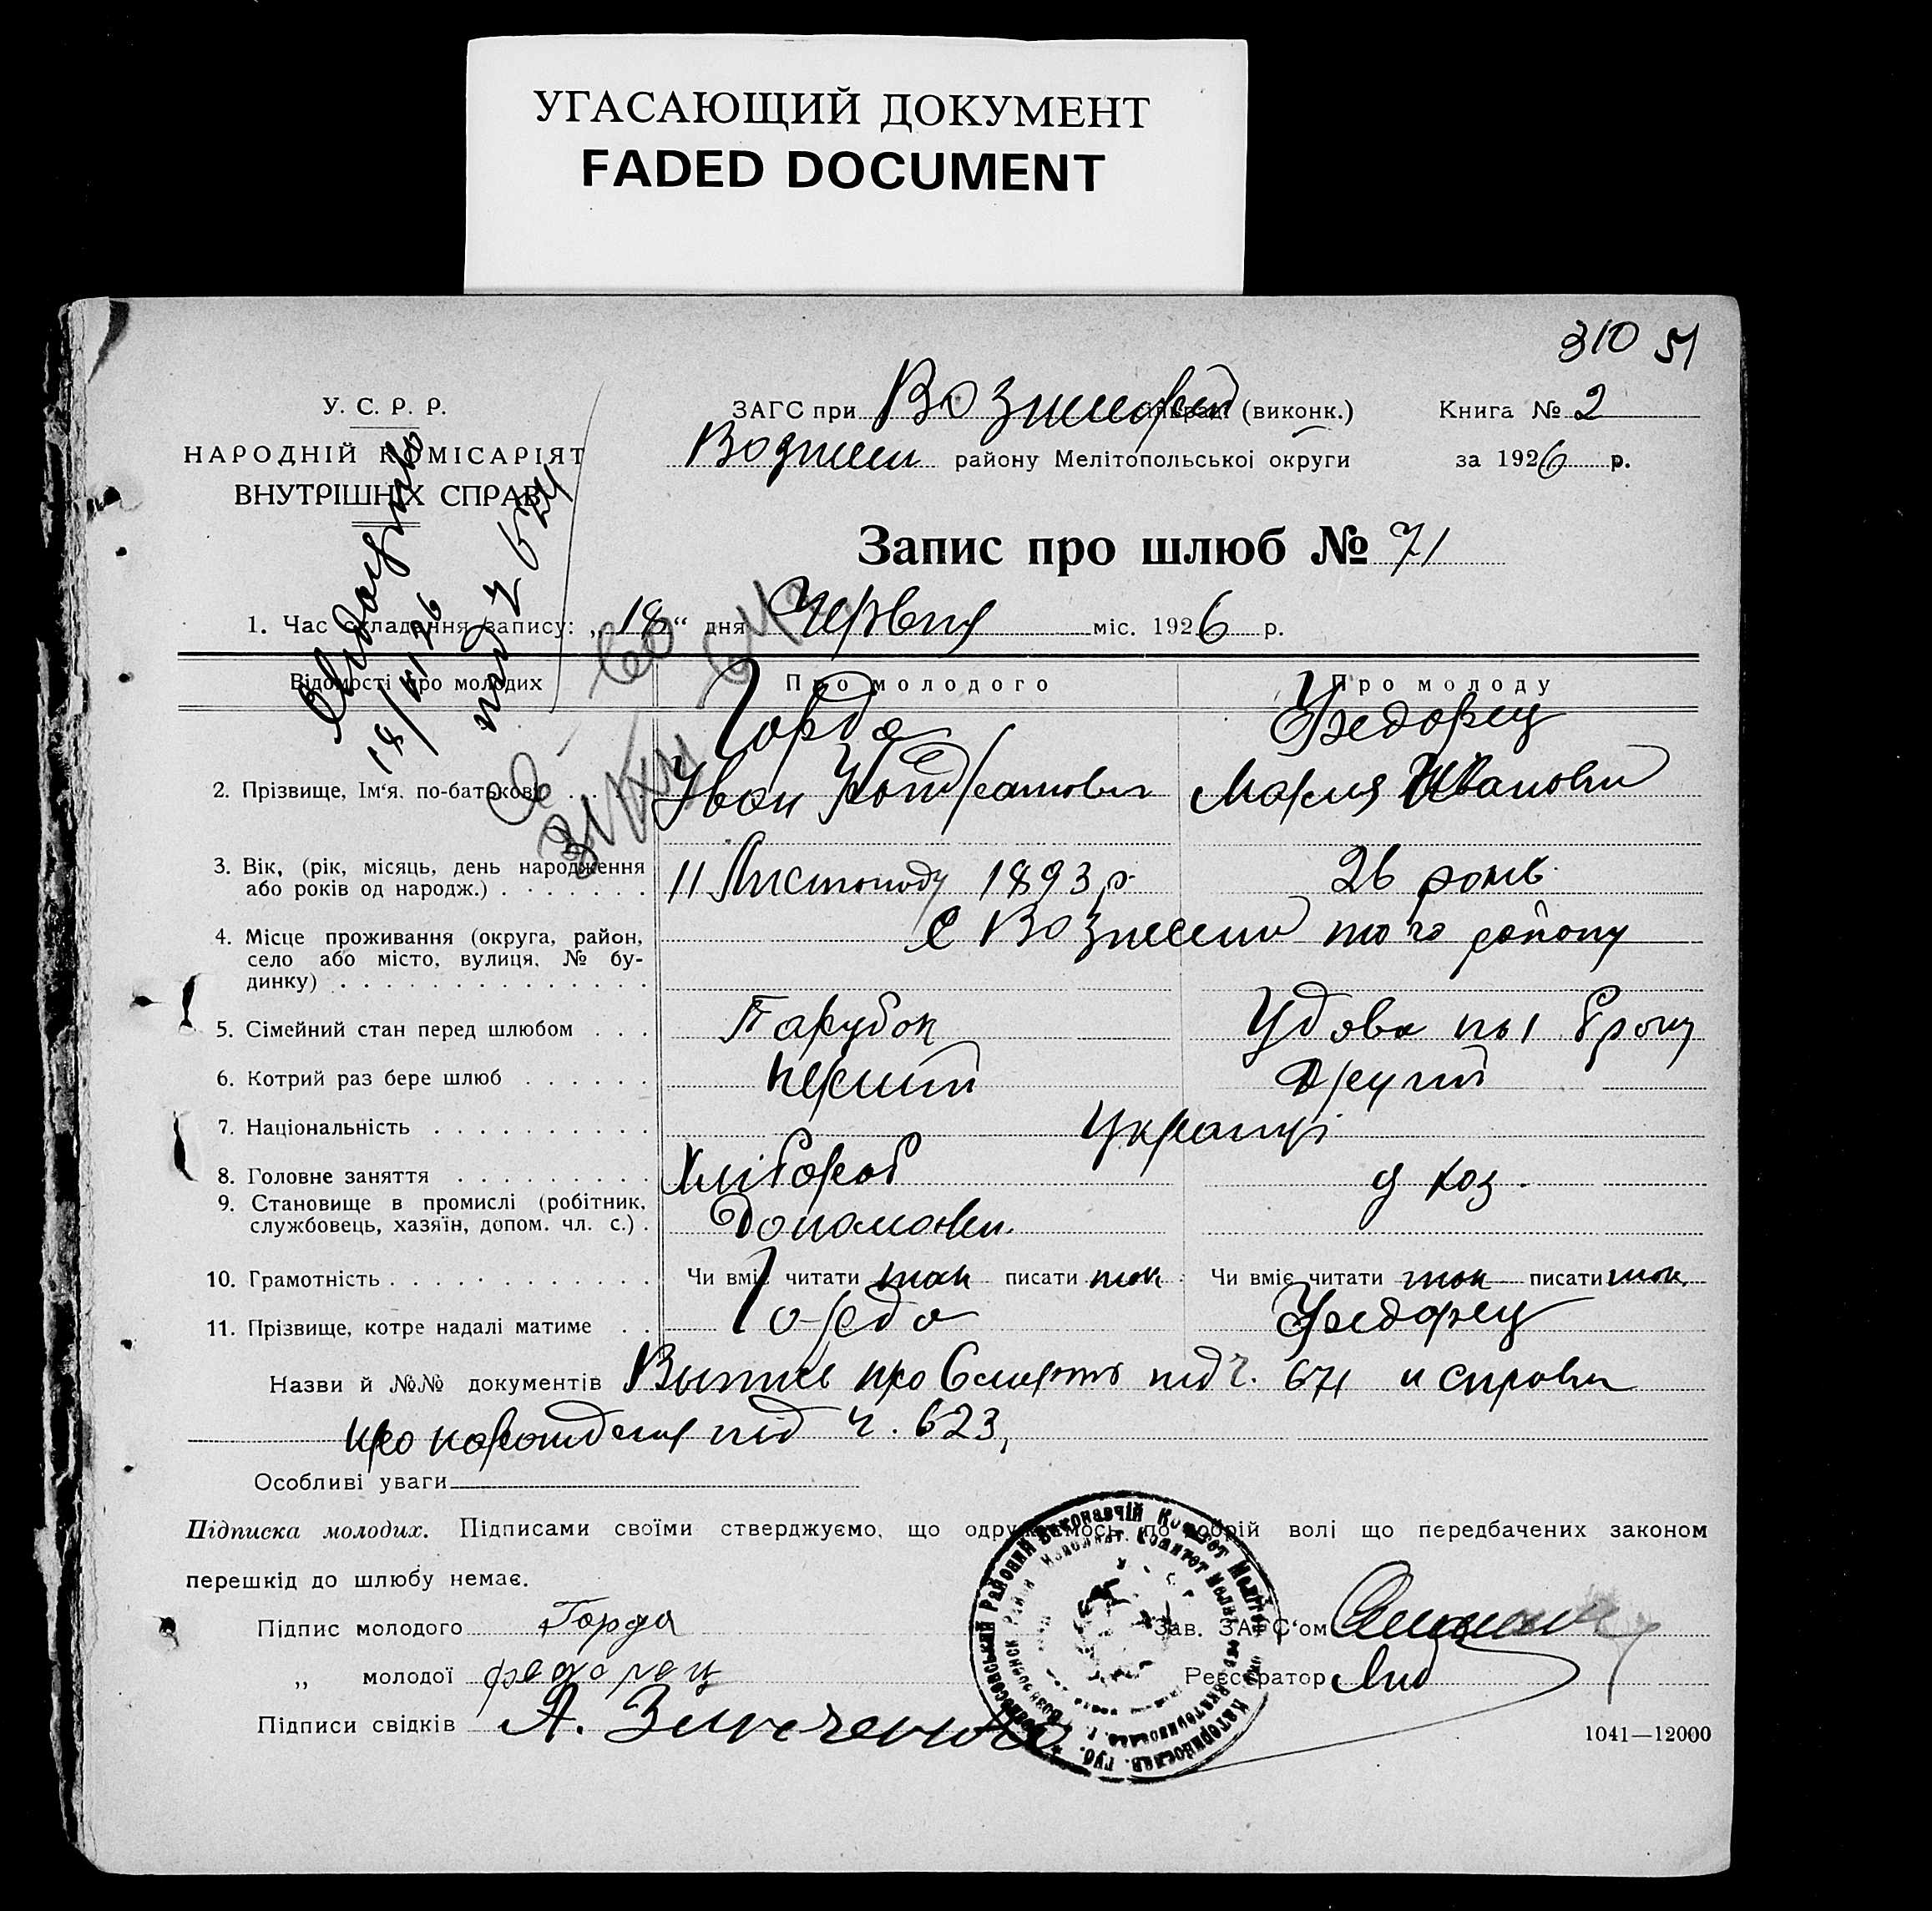 УГАСАЮЩИЙ ДОКУМЕНТ
FADED DOCUMENT
310 51
У. С. Р. Р.
НАРОДНІЙ КОМІСАРІЯТ
ВНУТРІШНІХ СПРАВ
ЗАГС при (виконк.) Книга № 2
району Мелітопольської округи за 1926 р.
Запис про шлюб № 71
1. Час складання запису: „18“ дня Червня міс. 1926 р.
Відомості про молодих Про молодого Про молоду
Горда Федорец
2. Прізвище, Ім'я, по-батькові . . . Іван Кондратович Мария Ивановн
3. Вік, (рік, місяць, день народження
або років од народж.) . . . . . . . 11 Листопаду 1893 р. 26 років.
4. Місце проживання (округа, район, с Вознесен того району
село або місто, вулиця, № бу-
динку) . . . . . . . . . . . . . .
5. Сімейний стан перед шлюбом . . . Парубок Удова
6. Котрий раз бере шлюб . . . . . . перший другий
7. Національність . . . . . . . . . . Українці
8. Головне заняття . . . . . . . . . Хлібороб д хоз.
9. Становище в промислі (робітник,
службовець, хазяїн, допом. чл. с.) .
10. Грамотність . . . . . . . . . . . . Чи вміє читати так писати так Чи вміє читати так писати так
11. Прізвище, котре надалі матиме . . Горда Федорец
Назви й №№ документів Выпис про смерть під ч. 671 и справки
про нарождения під ч. 623,
Особливі уваги
Підписка молодих. Підписами своїми стверджуємо, що одружуємось по добрій волі що передбачених законом
перешкід до шлюбу немає.
Підпис молодого Горда Зав. ЗАГС'ом
„ молодої федорец Реєстратор
Підписи свідків А. Зинченко
1041—12000